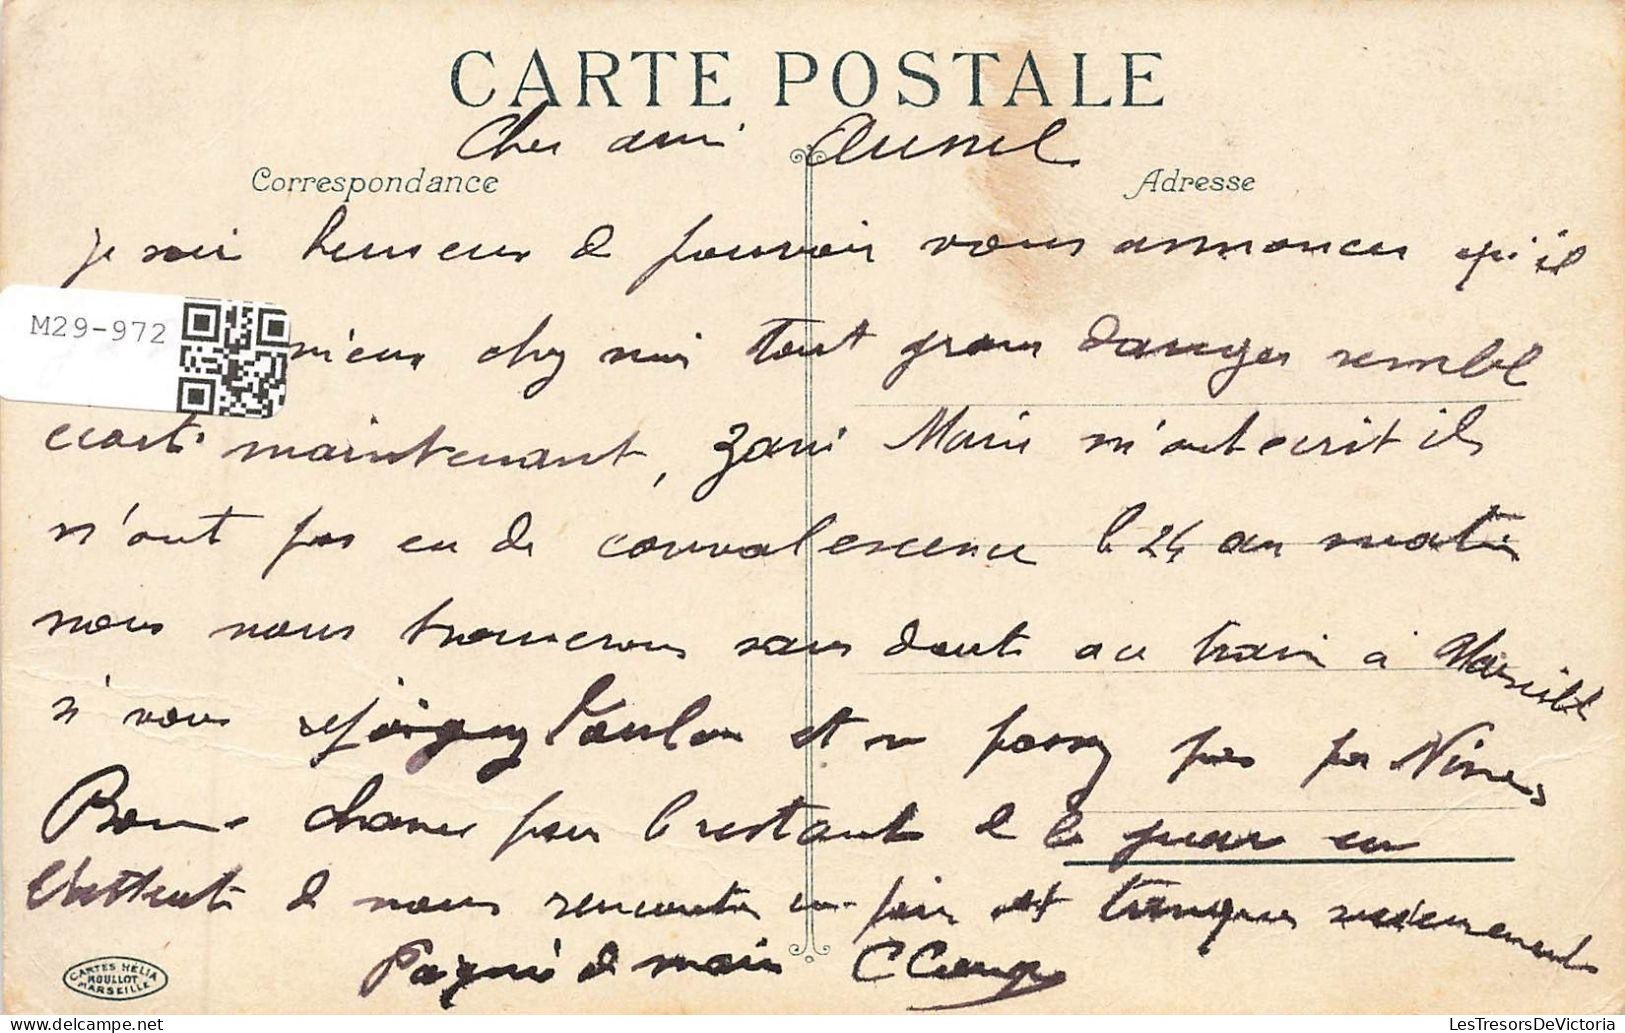 CARTE POSTALE
Cher ami Aunel
Correspondance
Adresse
je suis heureux de pouvoir vous annoncer qu'il
M29-972
mieux chez moi tout grave danger semble
ecarté maintenant, Marie m'ont ecrit ils
n'ont pas eu de convalescence le 24 au matin
nous nous trouverons sans doute au train à Marseille
si vous rejoignez Toulon et ne passez pas par Nimes
Bonne chance pour le restant de la guerre en
l'attente de nous rencontrer en paix et
Poignée de main C
CARTES HELIA
MOULLOT
MARSEILLE
LesTresorsDeVictoria